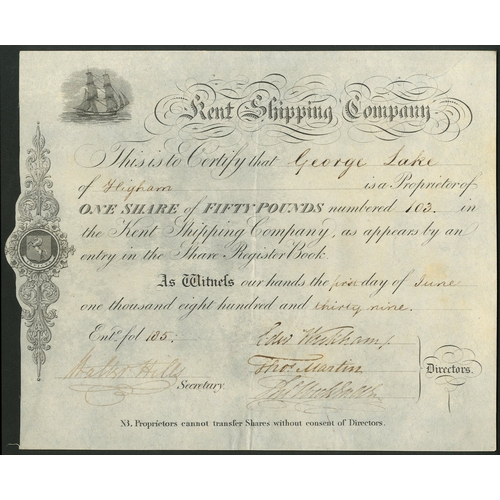 Kent Shipping Company
This is to Certify that George Lake
of Higham is a Proprietor of
ONE SHARE of FIFTY POUNDS numbered 103. in
the Kent Shipping Company, as appears by an
entry in the Share Register Book.
As Witness our hands the first day of June
one thousand eight hundred and thirty nine.
Entd. fol 185.
Edw Wickham
Walter Hills Secretary.
Thos. Martin
Directors.
NB. Proprietors cannot transfer Shares without consent of Directors.